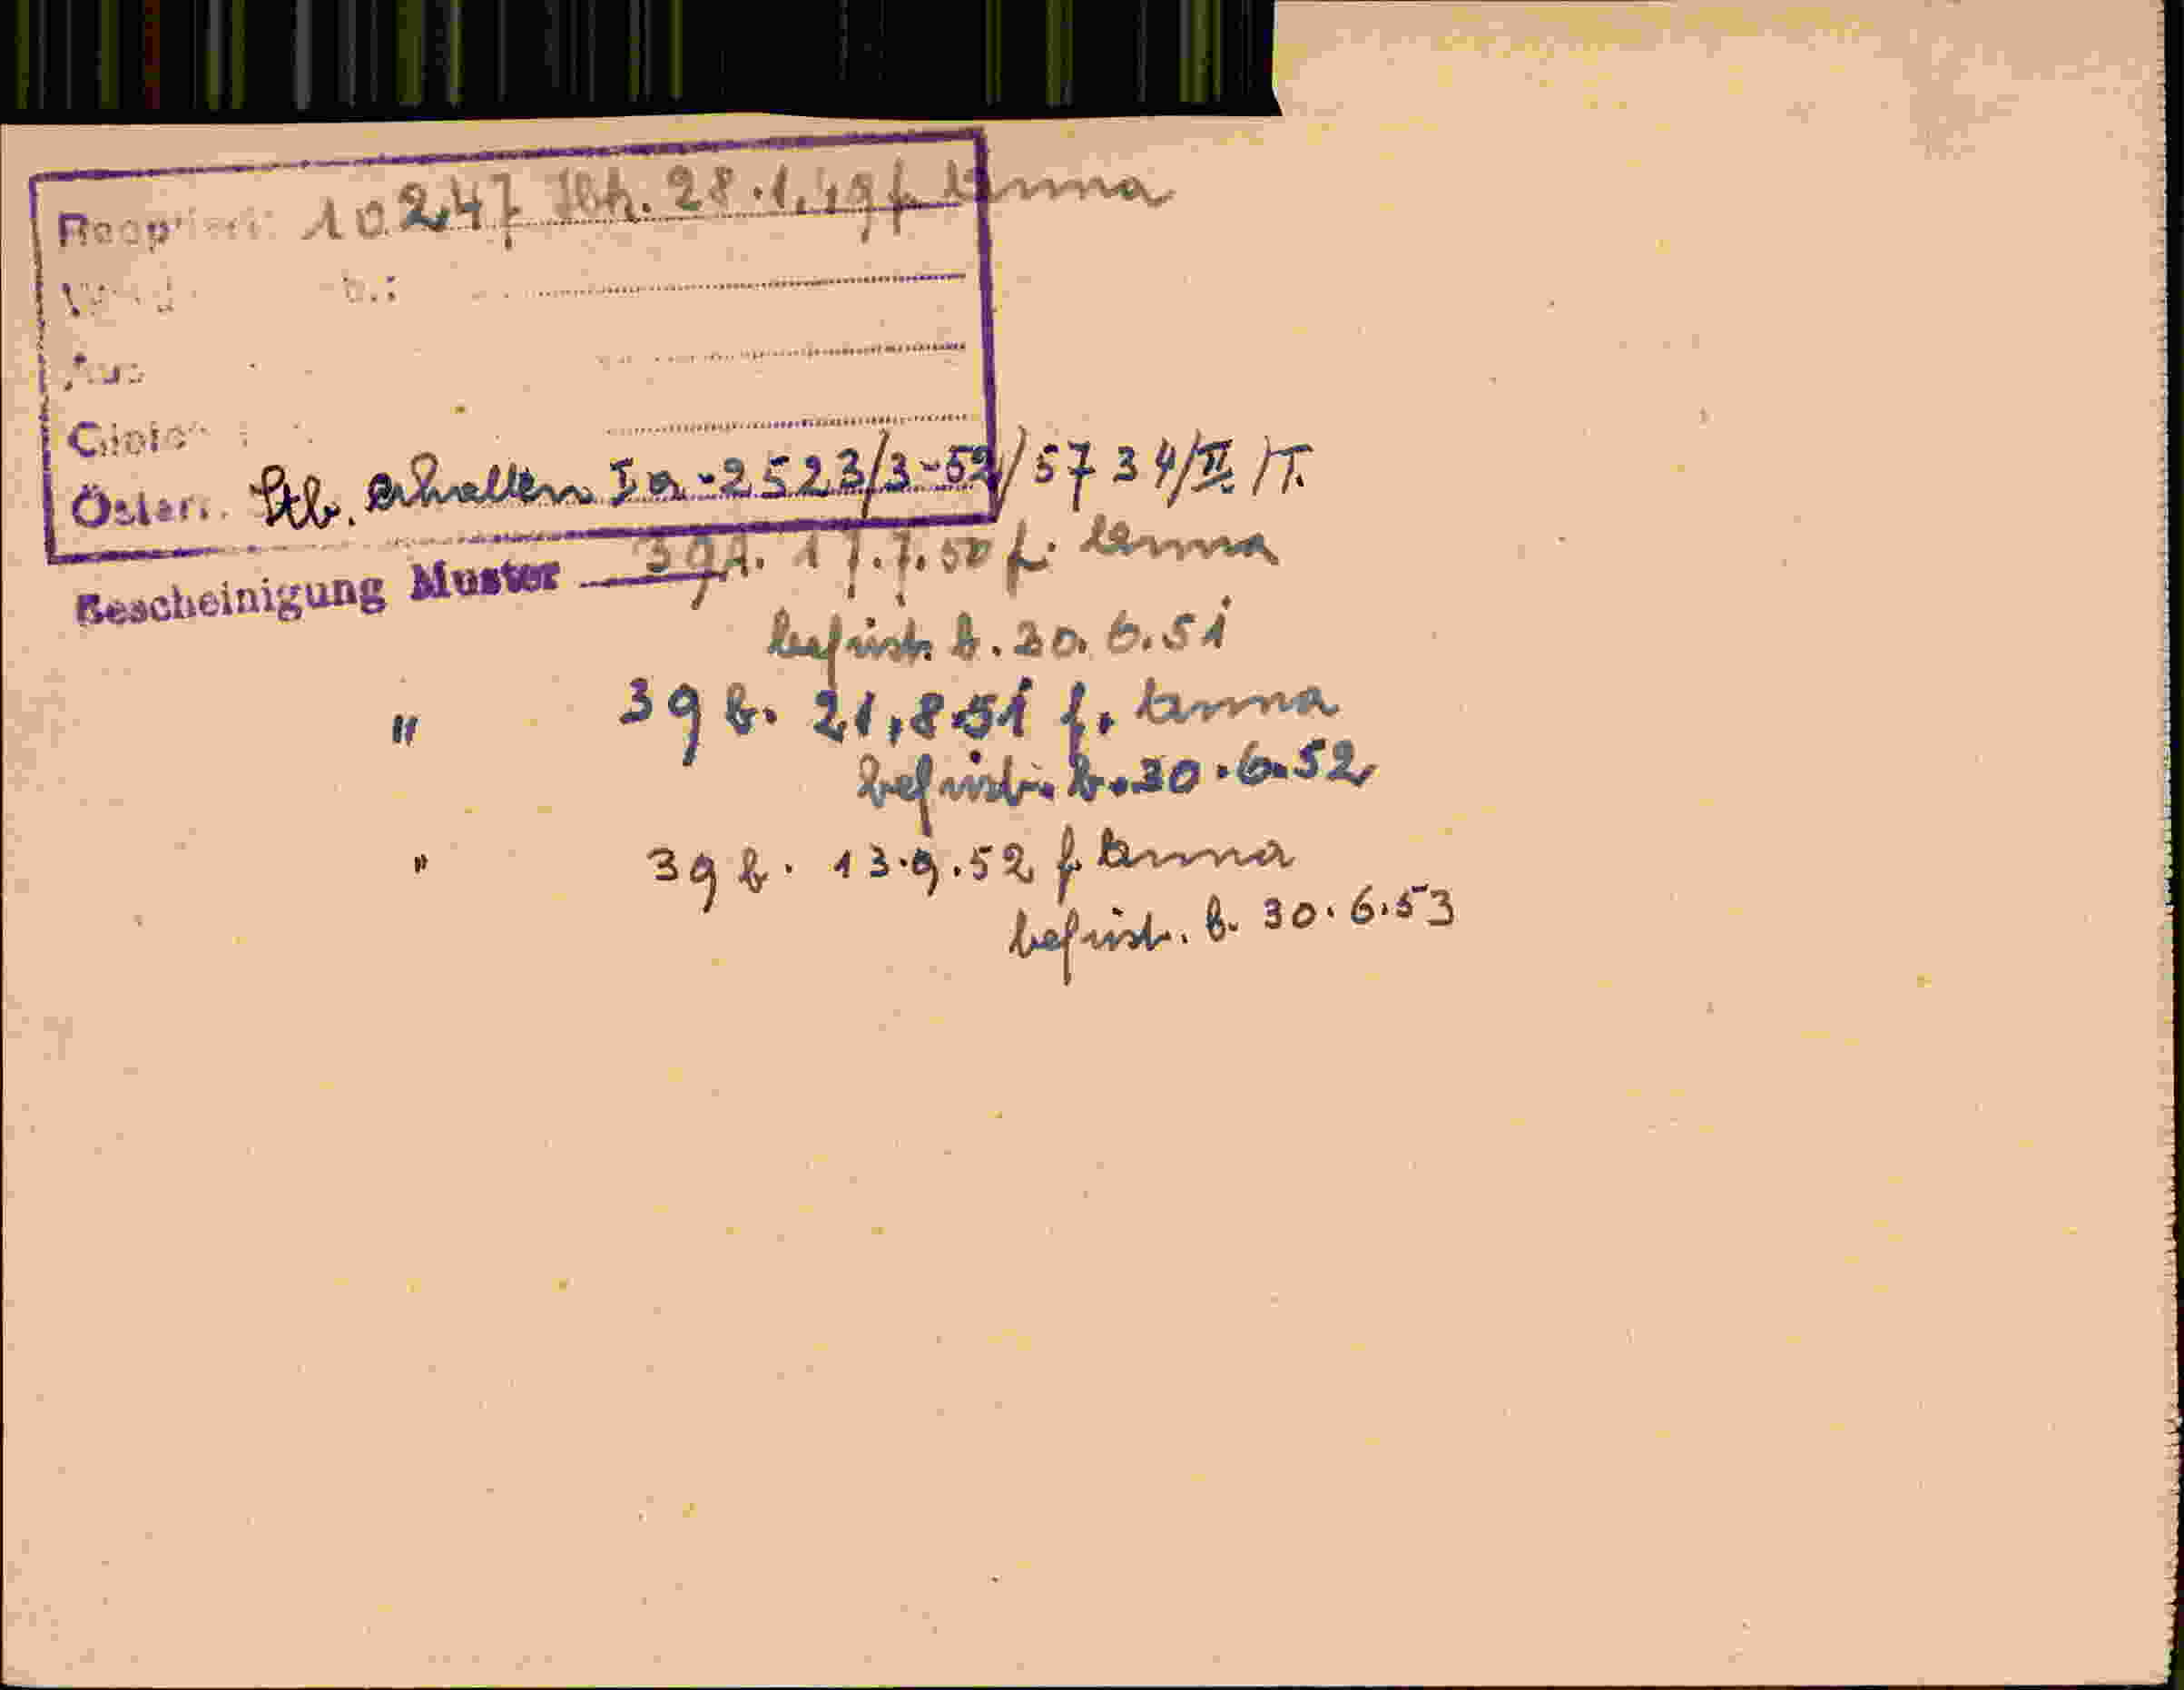 10.2.47 Stb. 28.1.49 f. Anna
Gleich
Österr. Stb. erhalten Ia-2523/3-52/5734/II/T.
Bescheinigung Muster 39b. 17.7.50 f. Anna
befrist. b. 30.6.51
" 39 b. 21.8.51 f. Anna
befrist. b. 30.6.52
" 39 b. 13.9.52 f. Anna
befrist. b. 30.6.53